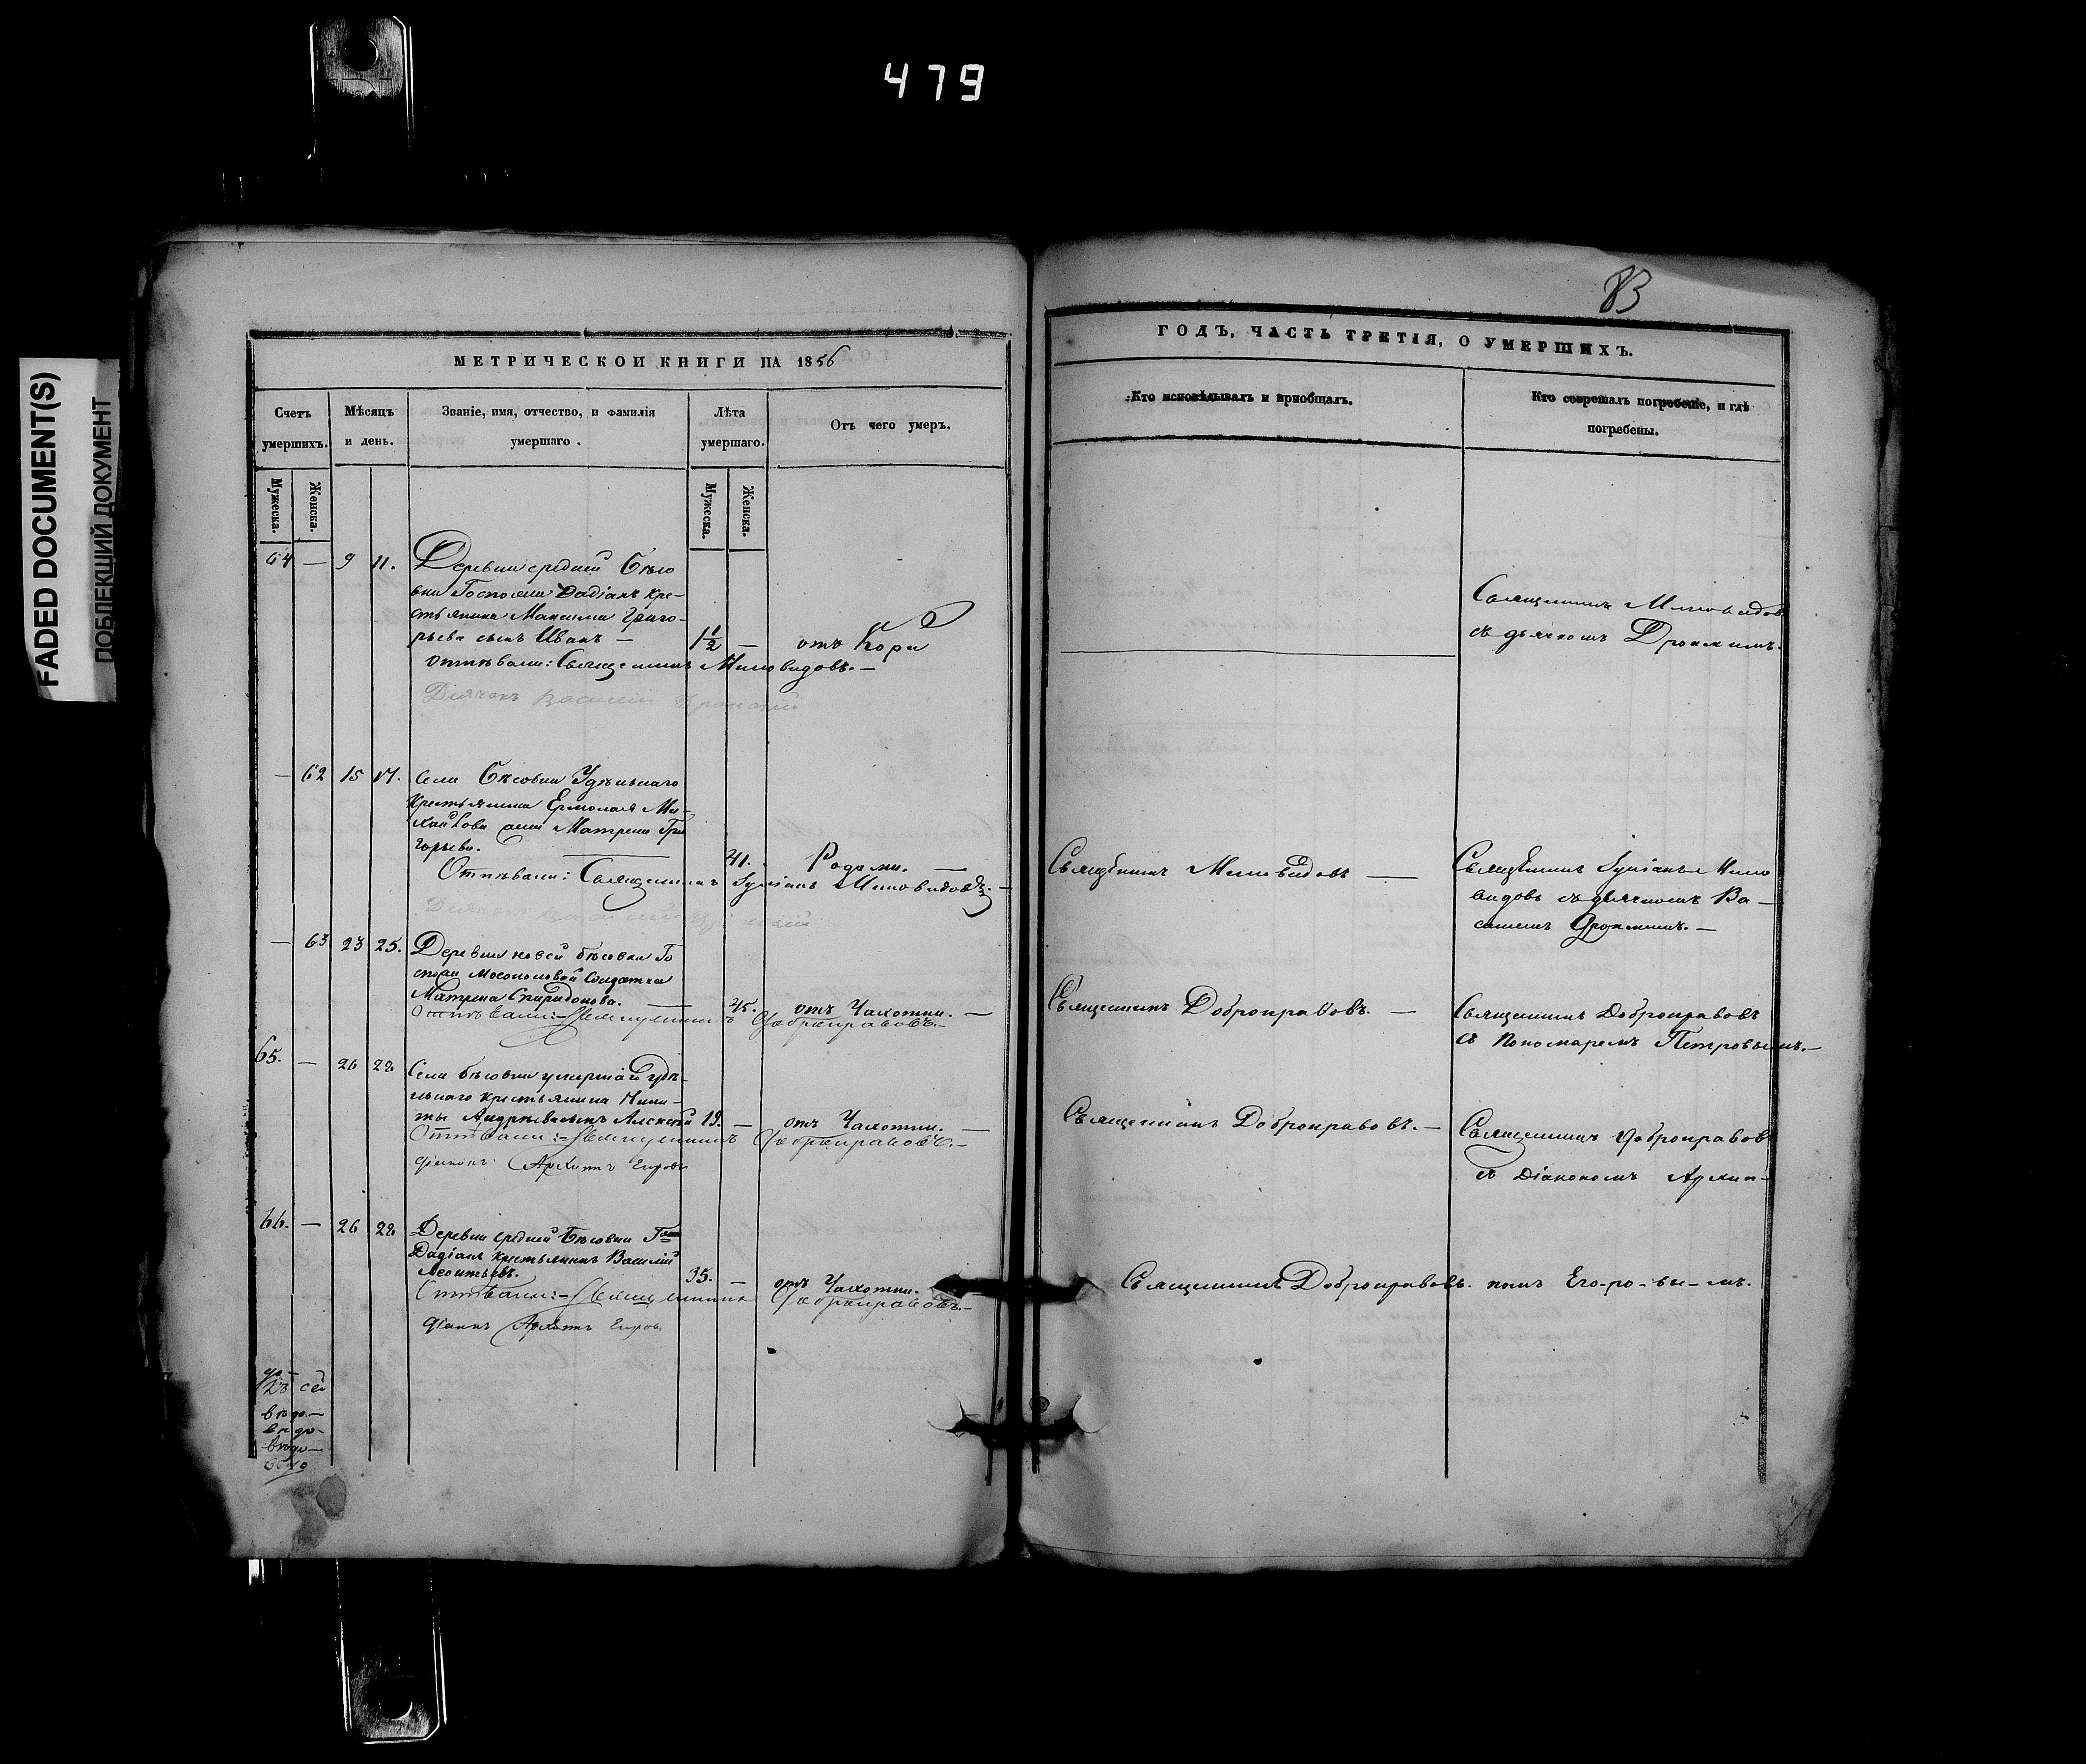 479
FADED DOCUMENT(S)
ПОБЛЕКЩИЙ ДОКУМЕНТ
83
МЕТРИЧЕСКОЙ КНИГИ НА 1856
Счетъ умершихъ.
Мѣсяцъ и день.
Званіе, имя, отчество, и фамилія умершаго.
Лѣта умершаго.
Отъ чего умеръ.
Мужеска.
Женска.
Мужеска.
Женска.
64 — 9 11. Деревни средней Бѣсо
вки Госпожи Дадіанъ кре-
стьянина Максима Григо-
рьева сынъ Иванъ — 1 1/2 — отъ Кори
отпѣвали: Священникъ Миловидовъ. —
Дьячокъ Василій
— 62 15 17. Села Бѣсовки Удѣльнаго
Крестьянина Ермолая Ми-
хайлова жена Матрена Гри
горьева. — 41. Родами. —
Отпѣвали: Священникъ Миловидовъ. —
Дьячокъ Василій
— 63 23 25. Деревни новой бѣсовки Го
спожи Мосоловой Солдатка
Матрена Спиридонова. — 45. отъ Чахотки. —
Отпѣвали:— Священникъ Добронравовъ. —
65. — 26 28 Села бѣсовки умершаго удѣ-
льнаго крестьянина Ники-
ты Андрѣева сынъ Алексѣй 19. — отъ Чахотки. —
Отпѣвали:— Священникъ Добронравовъ. —
Діаконъ Архипъ Егоровъ
66. — 26 28 Деревни средней Бѣсовки Гпж
Дадіанъ крестьянинъ Василій
Леонтьевъ. 35. — отъ Чахотки.
Отпѣвали:— Священникъ Добронравовъ. —
Діаконъ Архипъ Егоровъ
ГОДЪ, ЧАСТЬ ТРЕТІЯ, О УМЕРШИХЪ.
Кто исповѣдывалъ и пріобщалъ.
Кто совершалъ погребеніе, и гдѣ погребены.
Священникъ Миловидовъ
съ дьячкомъ
Священникъ Миловидовъ —
Священникъ Мило
видовъ съ дьячкомъ Ва-
силіемъ
Священникъ Добронравовъ. —
Священникъ Добронравовъ
съ Пономаремъ Петровымъ. —
Священникъ Добронравовъ. —
Священникъ Добронравовъ
съ Діакономъ Архип-
Священникъ Добронравовъ. помъ Его-ро-вы-мъ.